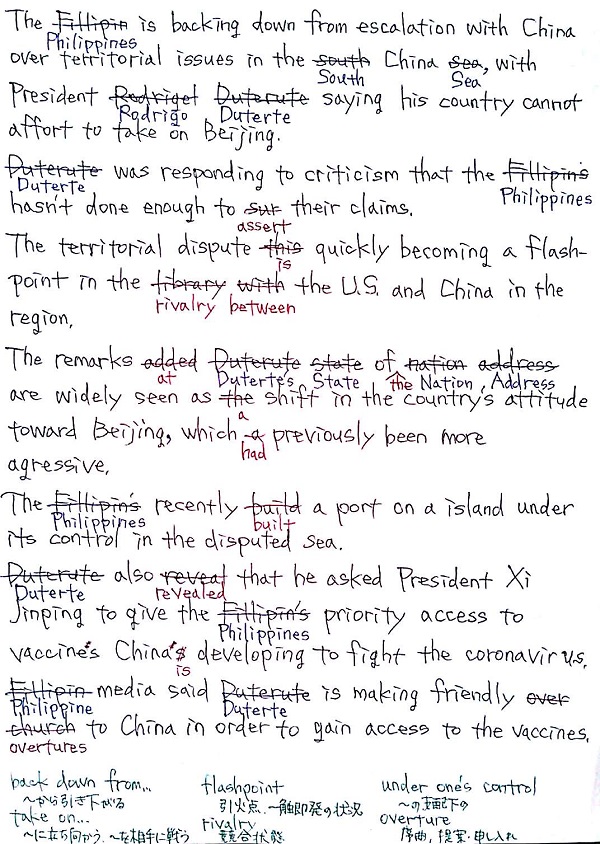 The Fillipin is backing down from escalation with China
Philippines
over territorial issues in the south China sea, with
South Sea
President Rodriget Duterute saying his country cannot
Rodrigo Duterte
affort to take on Beijing.
Duterute was responding to criticism that the Fillipin's
Duterte Philippines
hasn't done enough to sur their claims.
assert
The territorial dispute this quickly becoming a flash-
is
point in the library with the U.S. and China in the
rivalry between
region.
The remarks added Duterute state of nation address
at Duterte's State the Nation, Address
are widely seen as the shift in the country's attitude
a
toward Beijing, which a previously been more
had
agressive.
The Fillipin's recently build a port on a island under
Philippines built
its control in the disputed sea.
Duterute also reveal that he asked President Xi
Duterte revealed
Jinping to give the Fillipin's priority access to
Philippines
vaccine's China's developing to fight the coronavirus.
is
Fillipin media said Duterute is making friendly over
Philippine Duterte
church to China in order to gain access to the vaccines.
overtures
back down from... flashpoint under one's control
～から引き下がる 引火点、一触即発の状況 ～の支配下の
take on... rivalry overture
～に立ち向かう、～を相手に戦う 競合状態 序曲, 提案・申し入れ